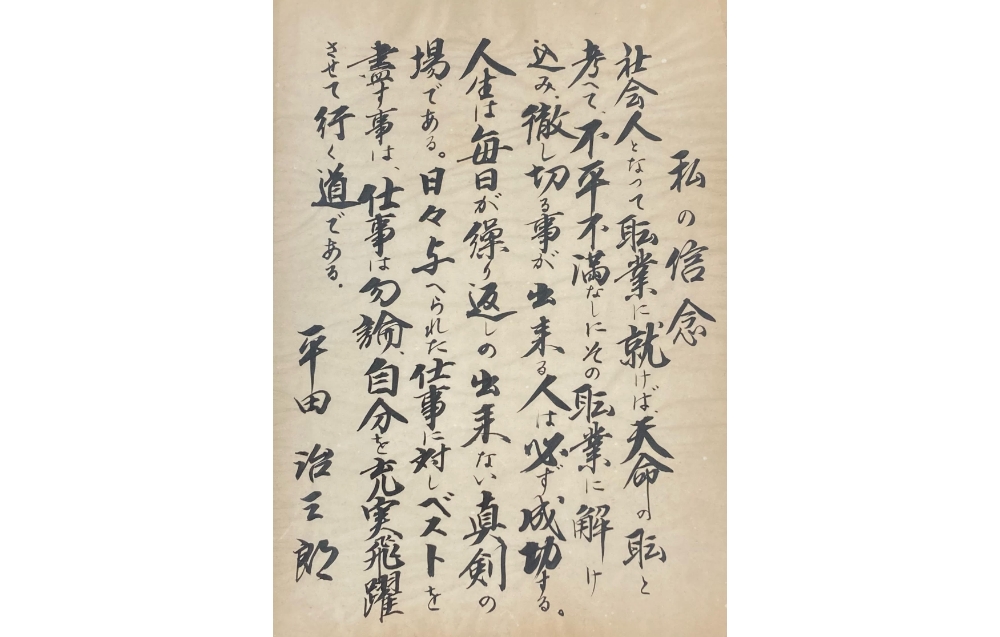 私の信念
社会人となって耺業に、就けば、天命の耺と
考へて、不平不満なしにその耺業に解け
込み、徹し切る事が出来る人は必ず成功する。
人生は毎日が繰り返しの出来ない真剣の
場である。日々与へられた仕事に対しベストを
盡す事は、仕事は勿論、自分を充実飛躍
させて行く道である。
平田治三郎